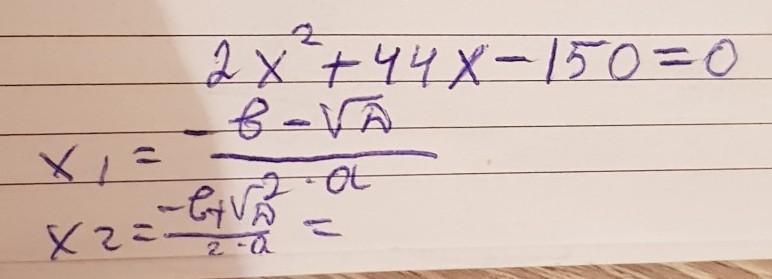 2x²+44x-150=0
x₁ = (-в-√D)/(2·a)
x₂ = (-в+√D)/(2·a) =